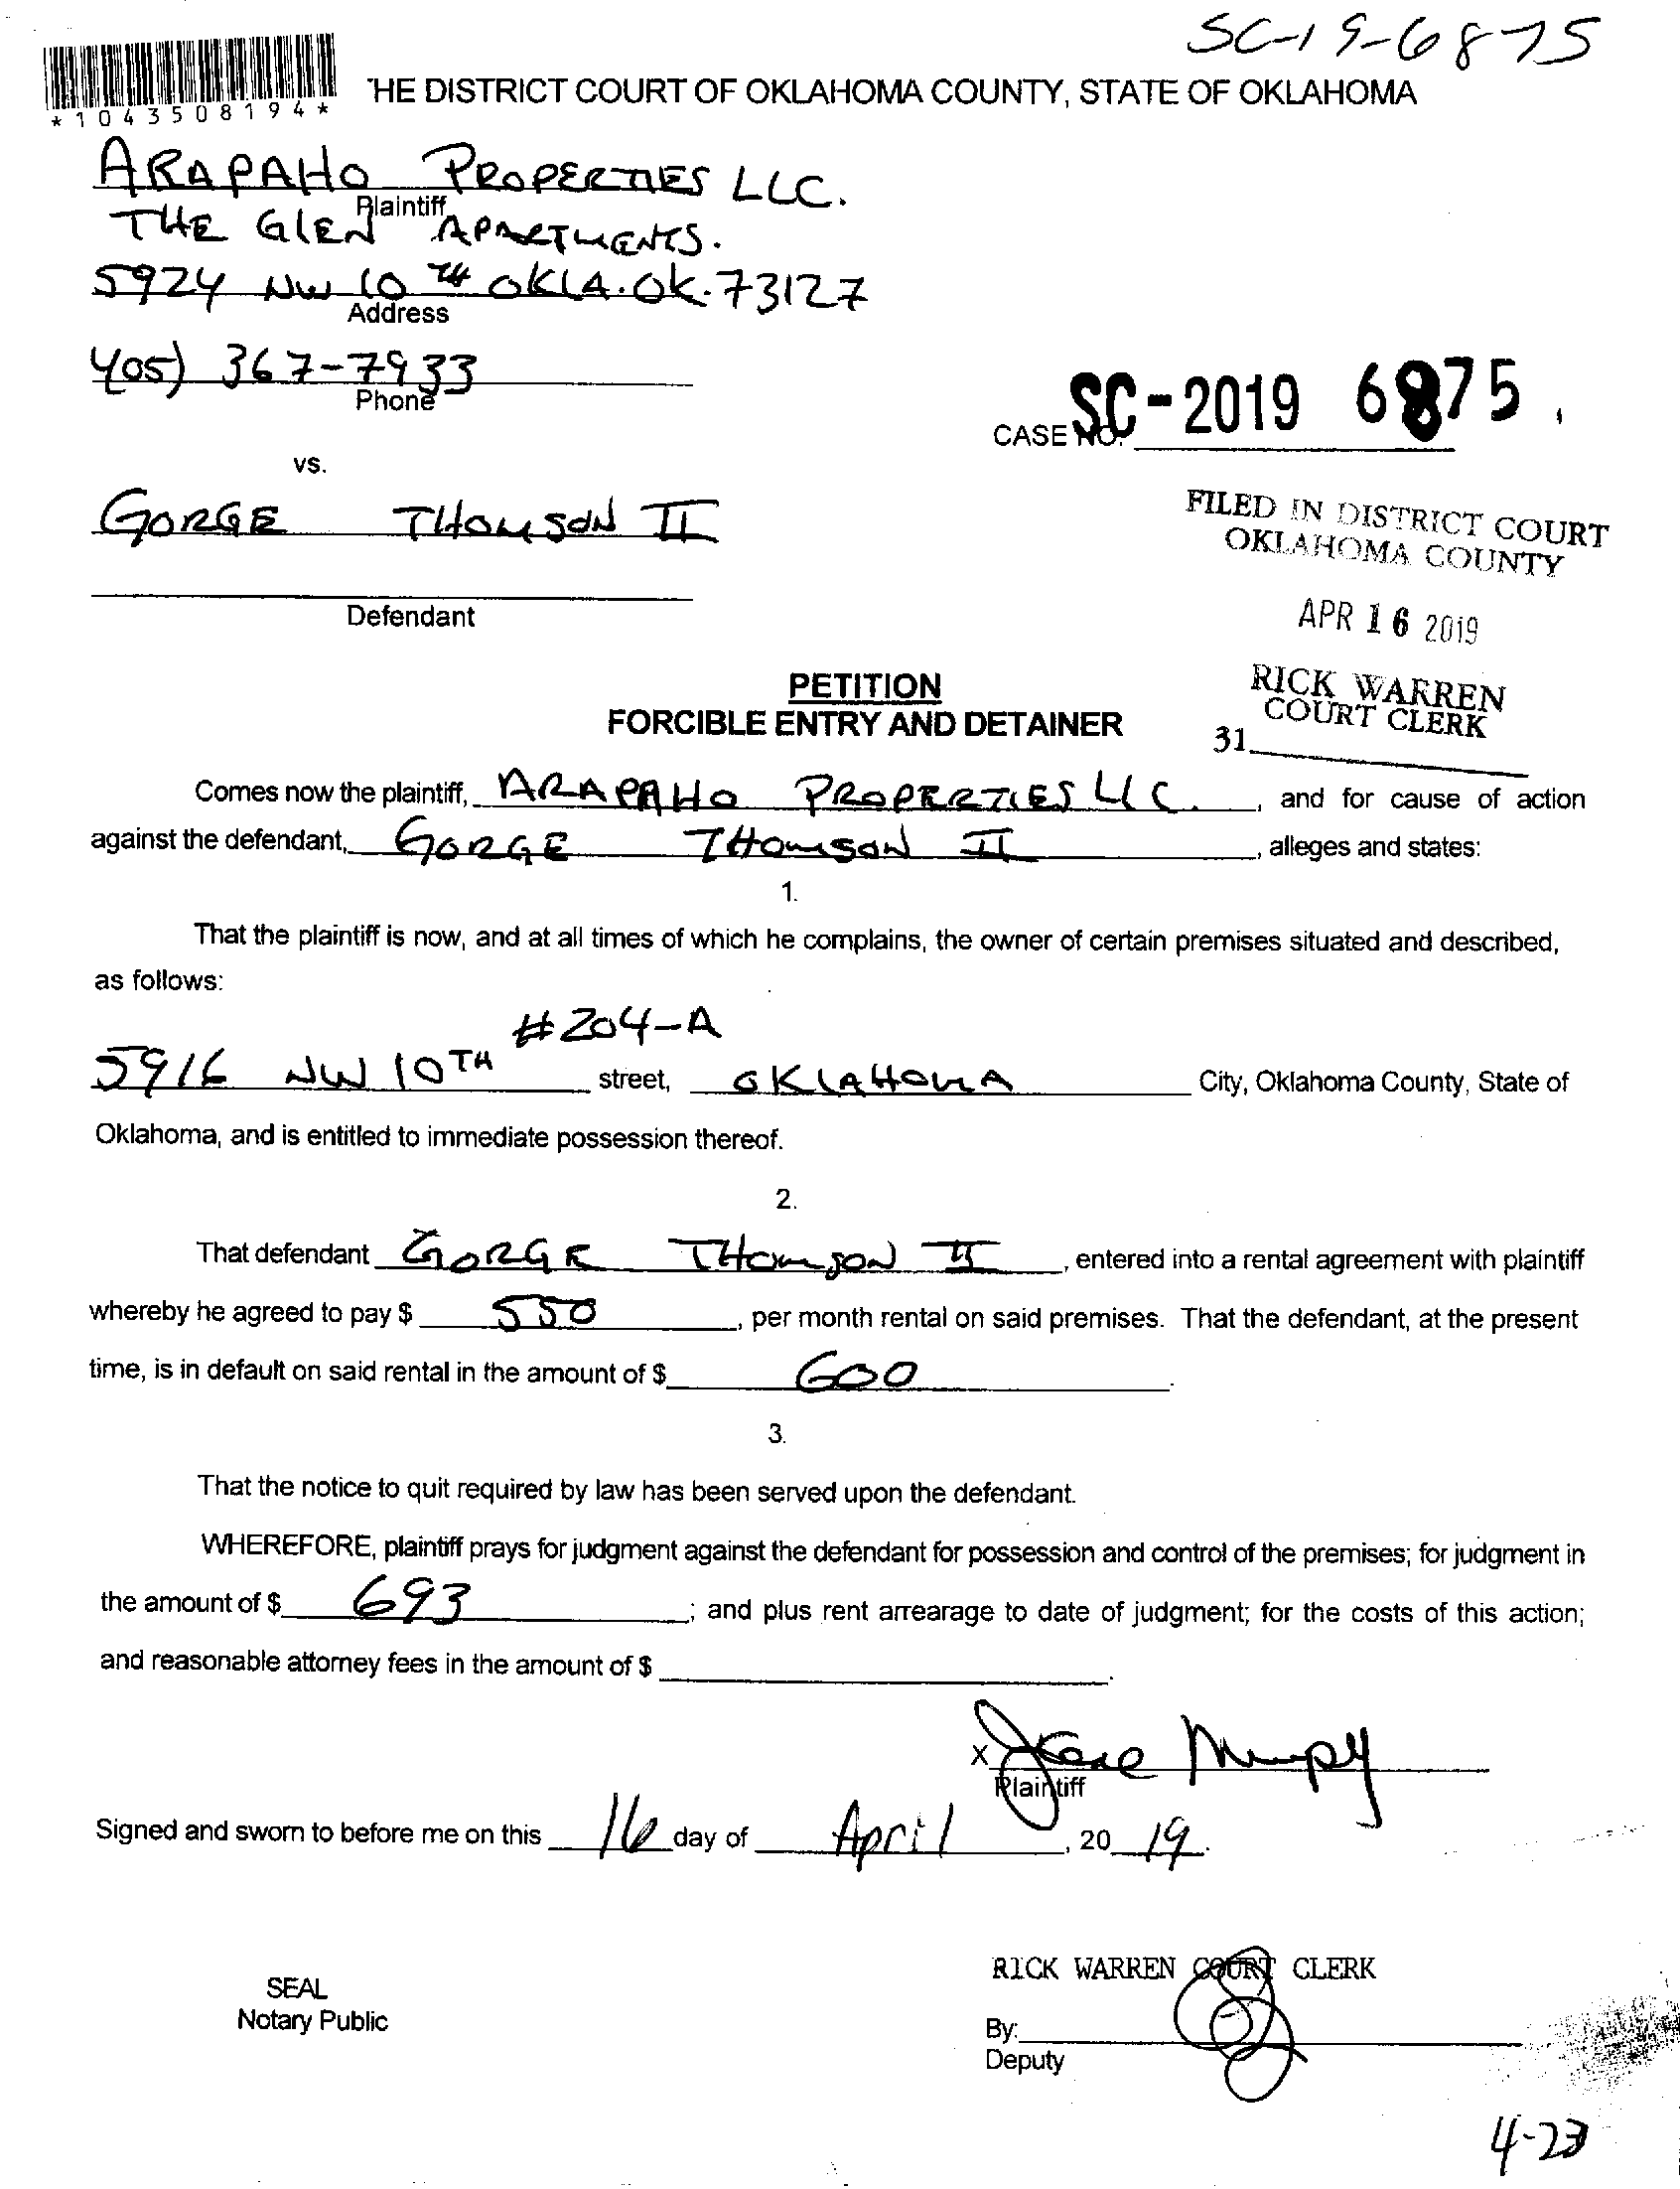 SC-19-6875
*1043508194*
THE DISTRICT COURT OF OKLAHOMA COUNTY, STATE OF OKLAHOMA
ARAPAHO PROPERTIES LLC.
Plaintiff
THE GLEN APARTMENTS.
5924 NW 10TH OKLA. OK. 73127
Address
405) 367-7933
Phone
CASE NO. SC-2019 6875
vs.
GORGE THOMSON II
FILED IN DISTRICT COURT
OKLAHOMA COUNTY
Defendant
APR 16 2019
RICK WARREN
COURT CLERK
31
PETITION
FORCIBLE ENTRY AND DETAINER
Comes now the plaintiff, ARAPAHO PROPERTIES LLC., and for cause of action
against the defendant, GORGE THOMSON II, alleges and states:
1.
That the plaintiff is now, and at all times of which he complains, the owner of certain premises situated and described,
as follows:
#204-A
5916 NW 10TH street, OKLAHOMA City, Oklahoma County, State of
Oklahoma, and is entitled to immediate possession thereof.
2.
That defendant GORGE THOMSON II, entered into a rental agreement with plaintiff
whereby he agreed to pay $ 550, per month rental on said premises. That the defendant, at the present
time, is in default on said rental in the amount of $ 600.
3.
That the notice to quit required by law has been served upon the defendant.
WHEREFORE, plaintiff prays for judgment against the defendant for possession and control of the premises; for judgment in
the amount of $ 693; and plus rent arrearage to date of judgment; for the costs of this action;
and reasonable attorney fees in the amount of $ .
X
Plaintiff
Signed and sworn to before me on this 16 day of April, 2019.
RICK WARREN COURT CLERK
SEAL
Notary Public
By:
Deputy
4-23